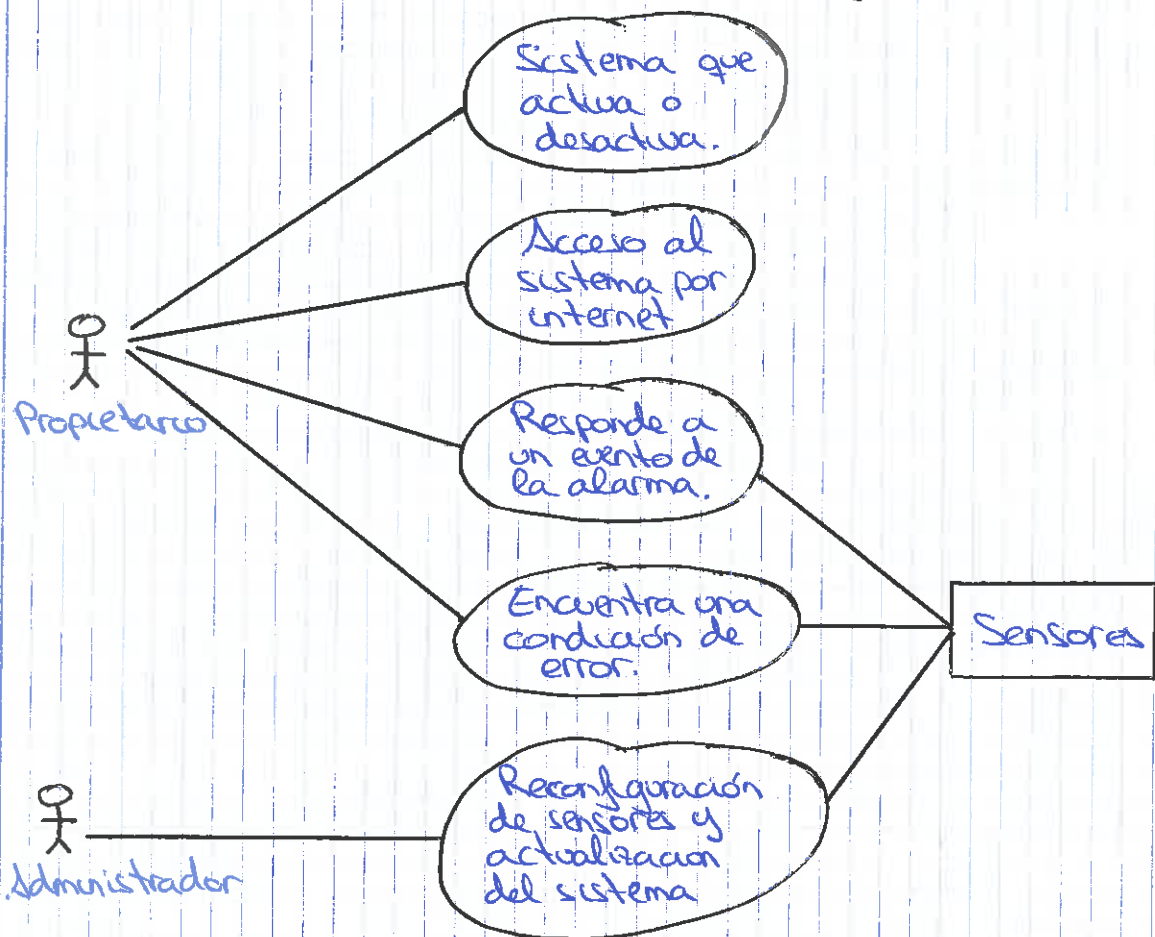 Sistema que
activa o
desactiva.
Acceso al
sistema por
internet
Propietario
Responde a
un evento de
la alarma.
Encuentra una
condición de
error.
Sensores
Reconfiguración
de sensores y
actualización
del sistema
Administrador